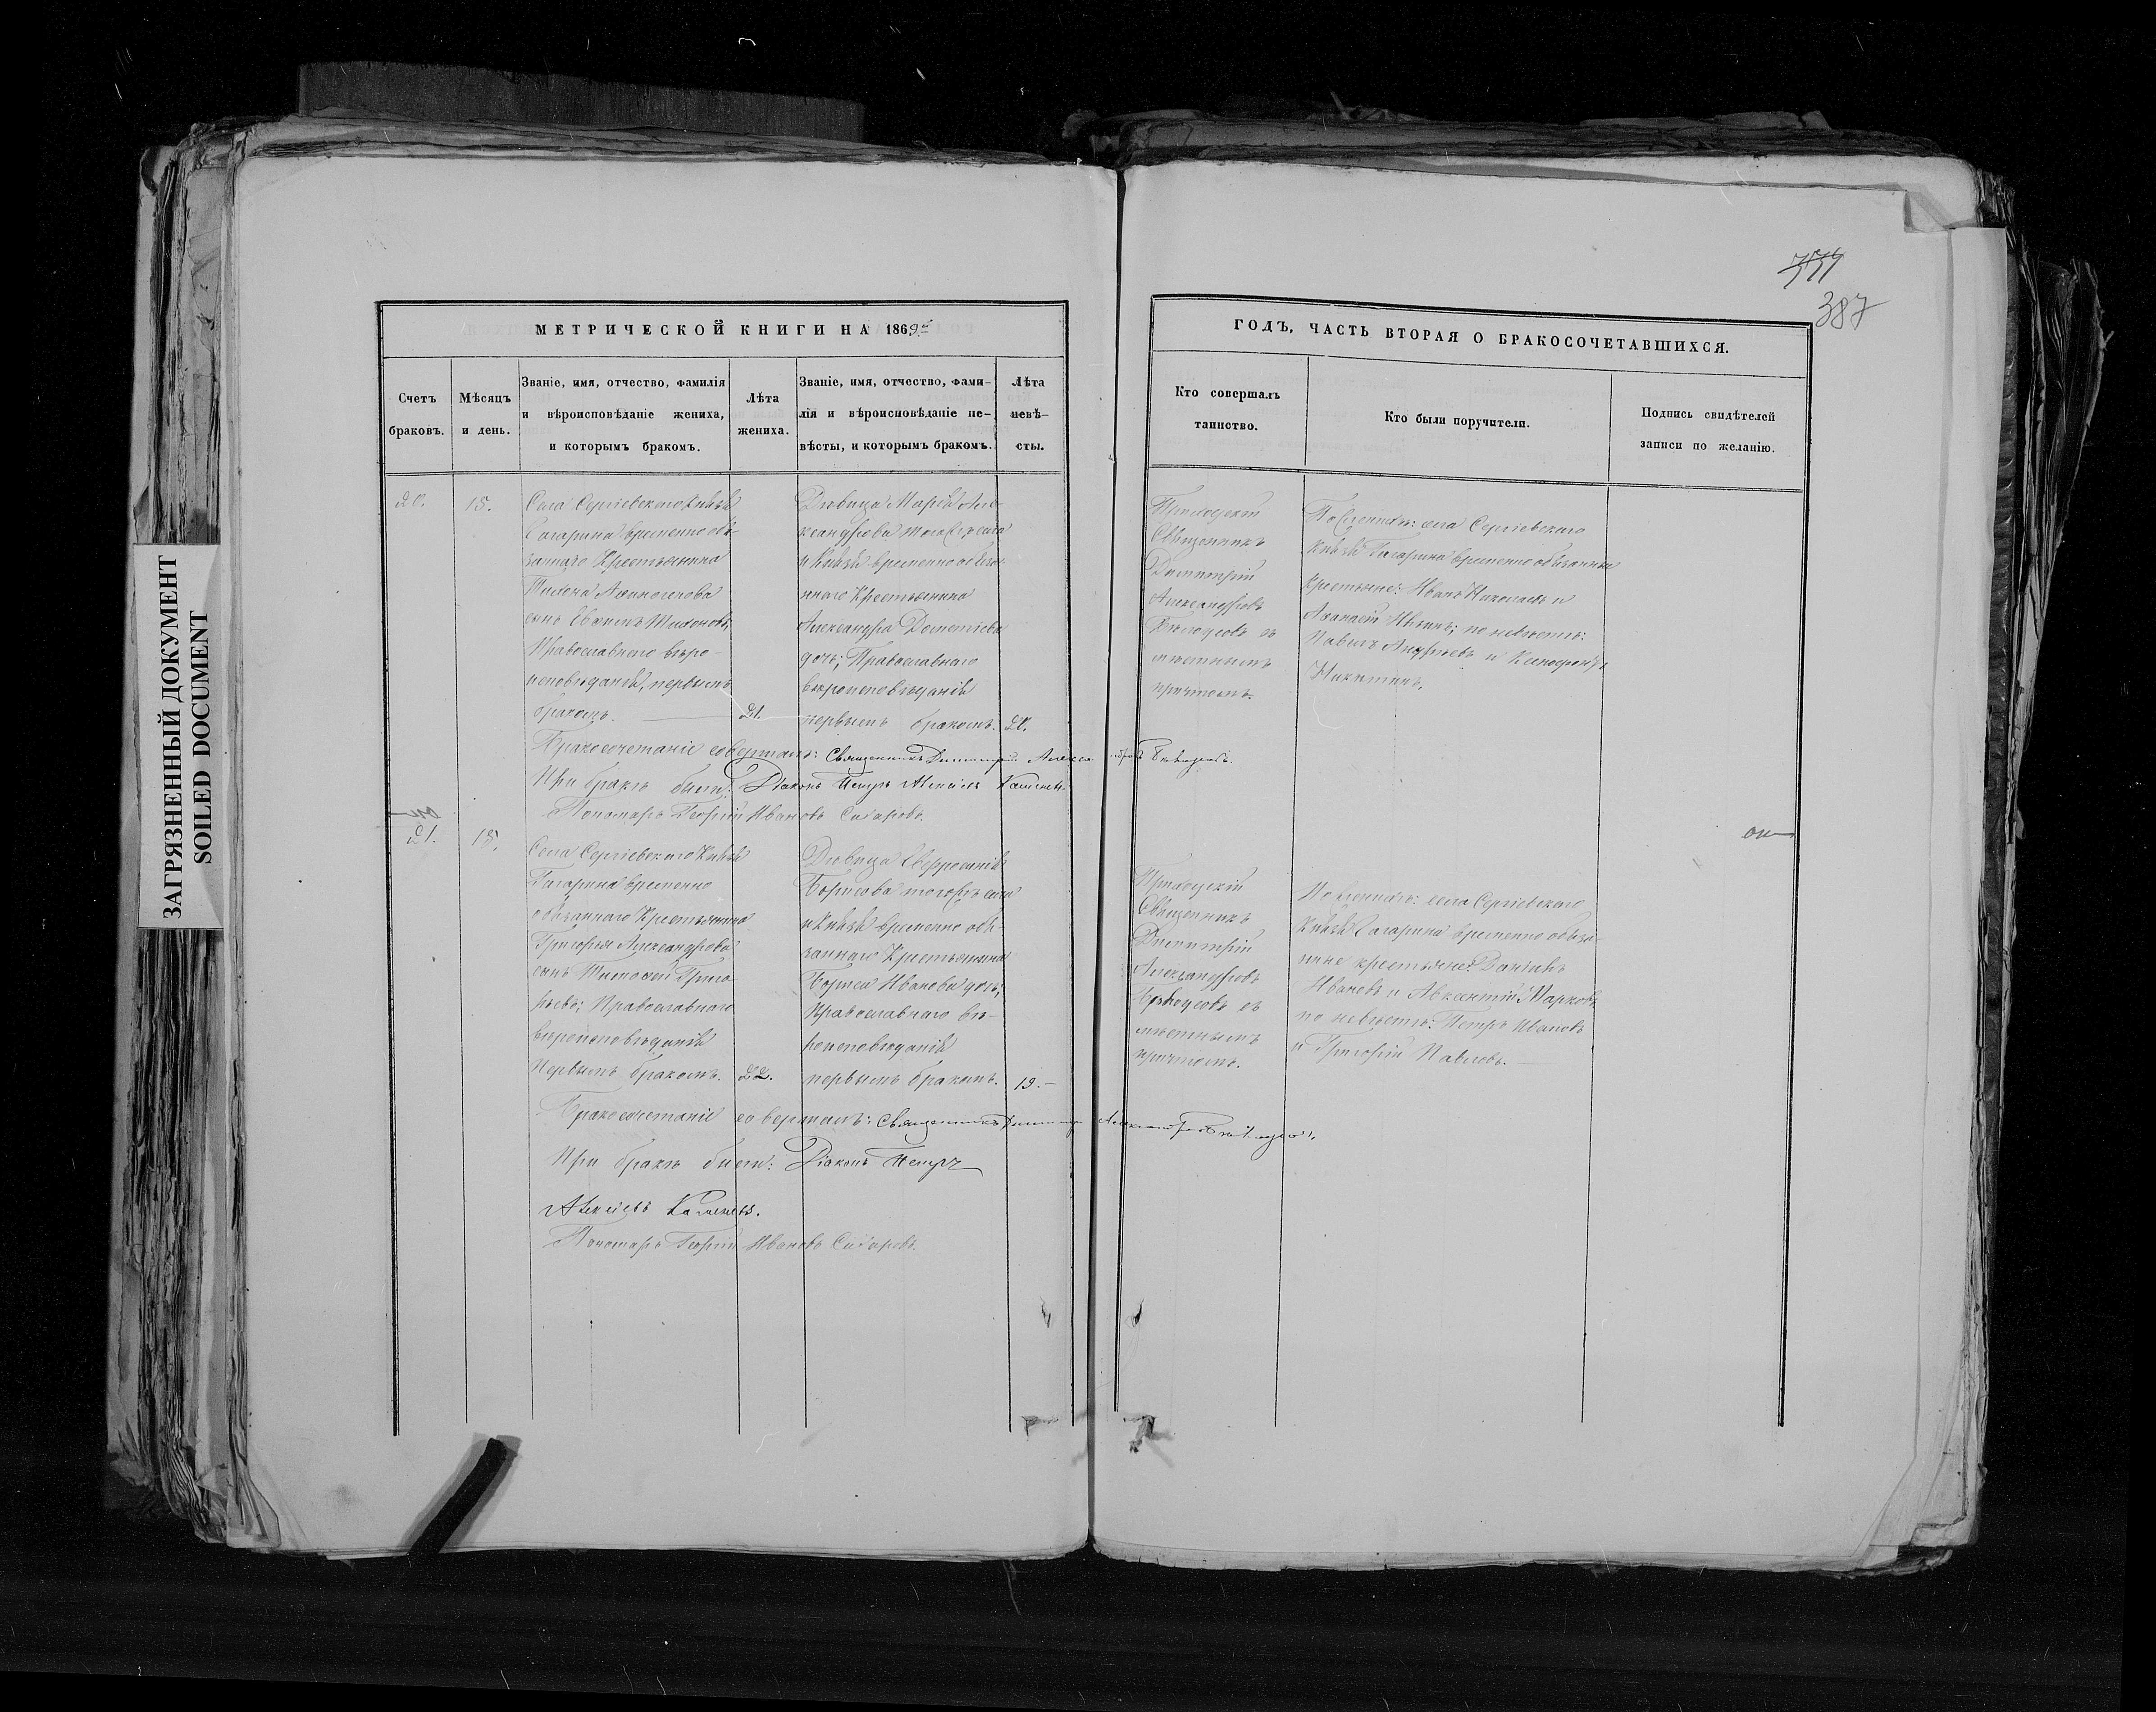 ЗАГРЯЗНЕННЫЙ ДОКУМЕНТ
SOILED DOCUMENT
387
МЕТРИЧЕСКОЙ КНИГИ НА 1869
Счетъ браковъ.
Мѣсяцъ и день.
Званіе, имя, отчество, фамилія
и вѣроисповѣданіе жениха,
и которымъ бракомъ.
Лѣта
жениха.
Званіе, имя, отчество, фами-
лія и вѣроисповѣданіе не-
вѣсты, и которымъ бракомъ.
Лѣта
невѣ-
сты.
20.
15.
Села Сергіевскаго Князя
Гагарина временно обя-
заннаго Крестьянина
Тихоновъ,
Православнаго вѣро-
исповѣданія, первымъ
бракомъ.
21.
Дѣвица Марія Але-
ксандрова тогожъ села
и Князя временно обяза-
ннаго Крестьянина
Александра Дометіева
дочь; Православнаго
вѣроисповѣданія
первымъ бракомъ.
20.
Бракосочетаніе совершалъ: Священникъ Димитрій
При бракѣ были: Діаконъ Петръ Алексѣевъ
Пономарь Георгій Ивановъ
21.
15.
Села Сергіевскаго Князя
Гагарина временно
обязаннаго Крестьянина
Григорья Александрова
сынъ Тимофей Григо-
рьевъ; Православнаго
вѣроисповѣданія
Первымъ бракомъ.
22.
Дѣвица Евфросинія
Борисова тогожъ села
и Князя временно обя-
заннаго Крестьянина
Бориса Иванова дочь;
Православнаго вѣ-
роисповѣданія
первымъ бракомъ.
19.
Бракосочетаніе совершалъ: Священникъ Димитрій
При бракѣ были: Діаконъ Петръ
Алексѣевъ
Пономарь Георгій Ивановъ
ГОДЪ, ЧАСТЬ ВТОРАЯ О БРАКОСОЧЕТАВШИХСЯ.
Кто совершалъ
таинство.
Кто были поручители.
Подпись свидѣтелей
записи по желанію.
Приходскій
Священникъ
Димитрій
Александровъ
съ
мѣстнымъ
причтомъ.
По женихѣ: села Сергіевскаго
Князя Гагарина временно обязанные
крестьяне: Иванъ Николаевъ и
Афанасій по невѣстѣ:
Павелъ Андреевъ и
Никитинъ.
Приходскій
Священникъ
Димитрій
Александровъ
съ
мѣстнымъ
причтомъ.
По женихѣ: села Сергіевскаго
Князя Гагарина временно обяза-
нные крестьяне: Даніилъ
Ивановъ и Авксентій Марковъ
по невѣстѣ: Петръ Ивановъ
и Григорій Павловъ.